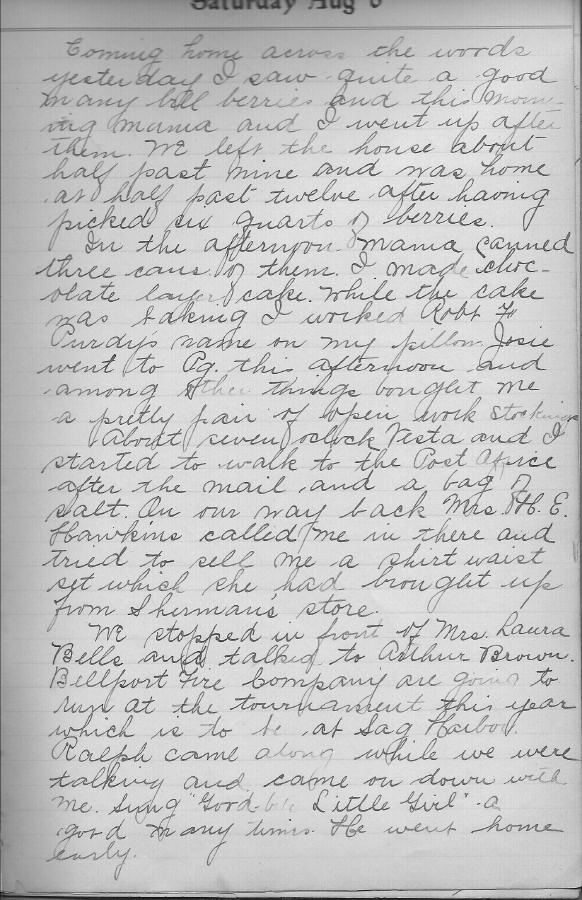 Saturday Aug 6
Coming home across the woods
yesterday I saw quite a good
many bill berries and this morn-
ing Mama and I went up after
them. We left the house about
half past nine and was home
at half past twelve after having
picked six quarts of berries.
In the afternoon Mama canned
three cans of them. I made choc-
olate layer cake. While the cake
was baking I worked Robt F
Purdy's name on my pillow. Josie
went to Pg. this afternoon and
among other things bought me
a pretty pair of open work stockings
About seven oclock Vesta and I
started to walk to the Post Office
after the mail and a bag of
salt. On our way back Mrs. H. E.
Hawkins called me in there and
tried to sell me a shirt waist
set which she had brought up
from Sherman's store.
We stopped in front of Mrs. Laura
Bells and talked to Arthur Brown.
Bellport Fire Company are going to
run at the tournament this year
which is to be at Sag Harbor.
Ralph came along while we were
talking and came on down with
me. Sung "Good-bye Little Girl" a
good many times. He went home
early.